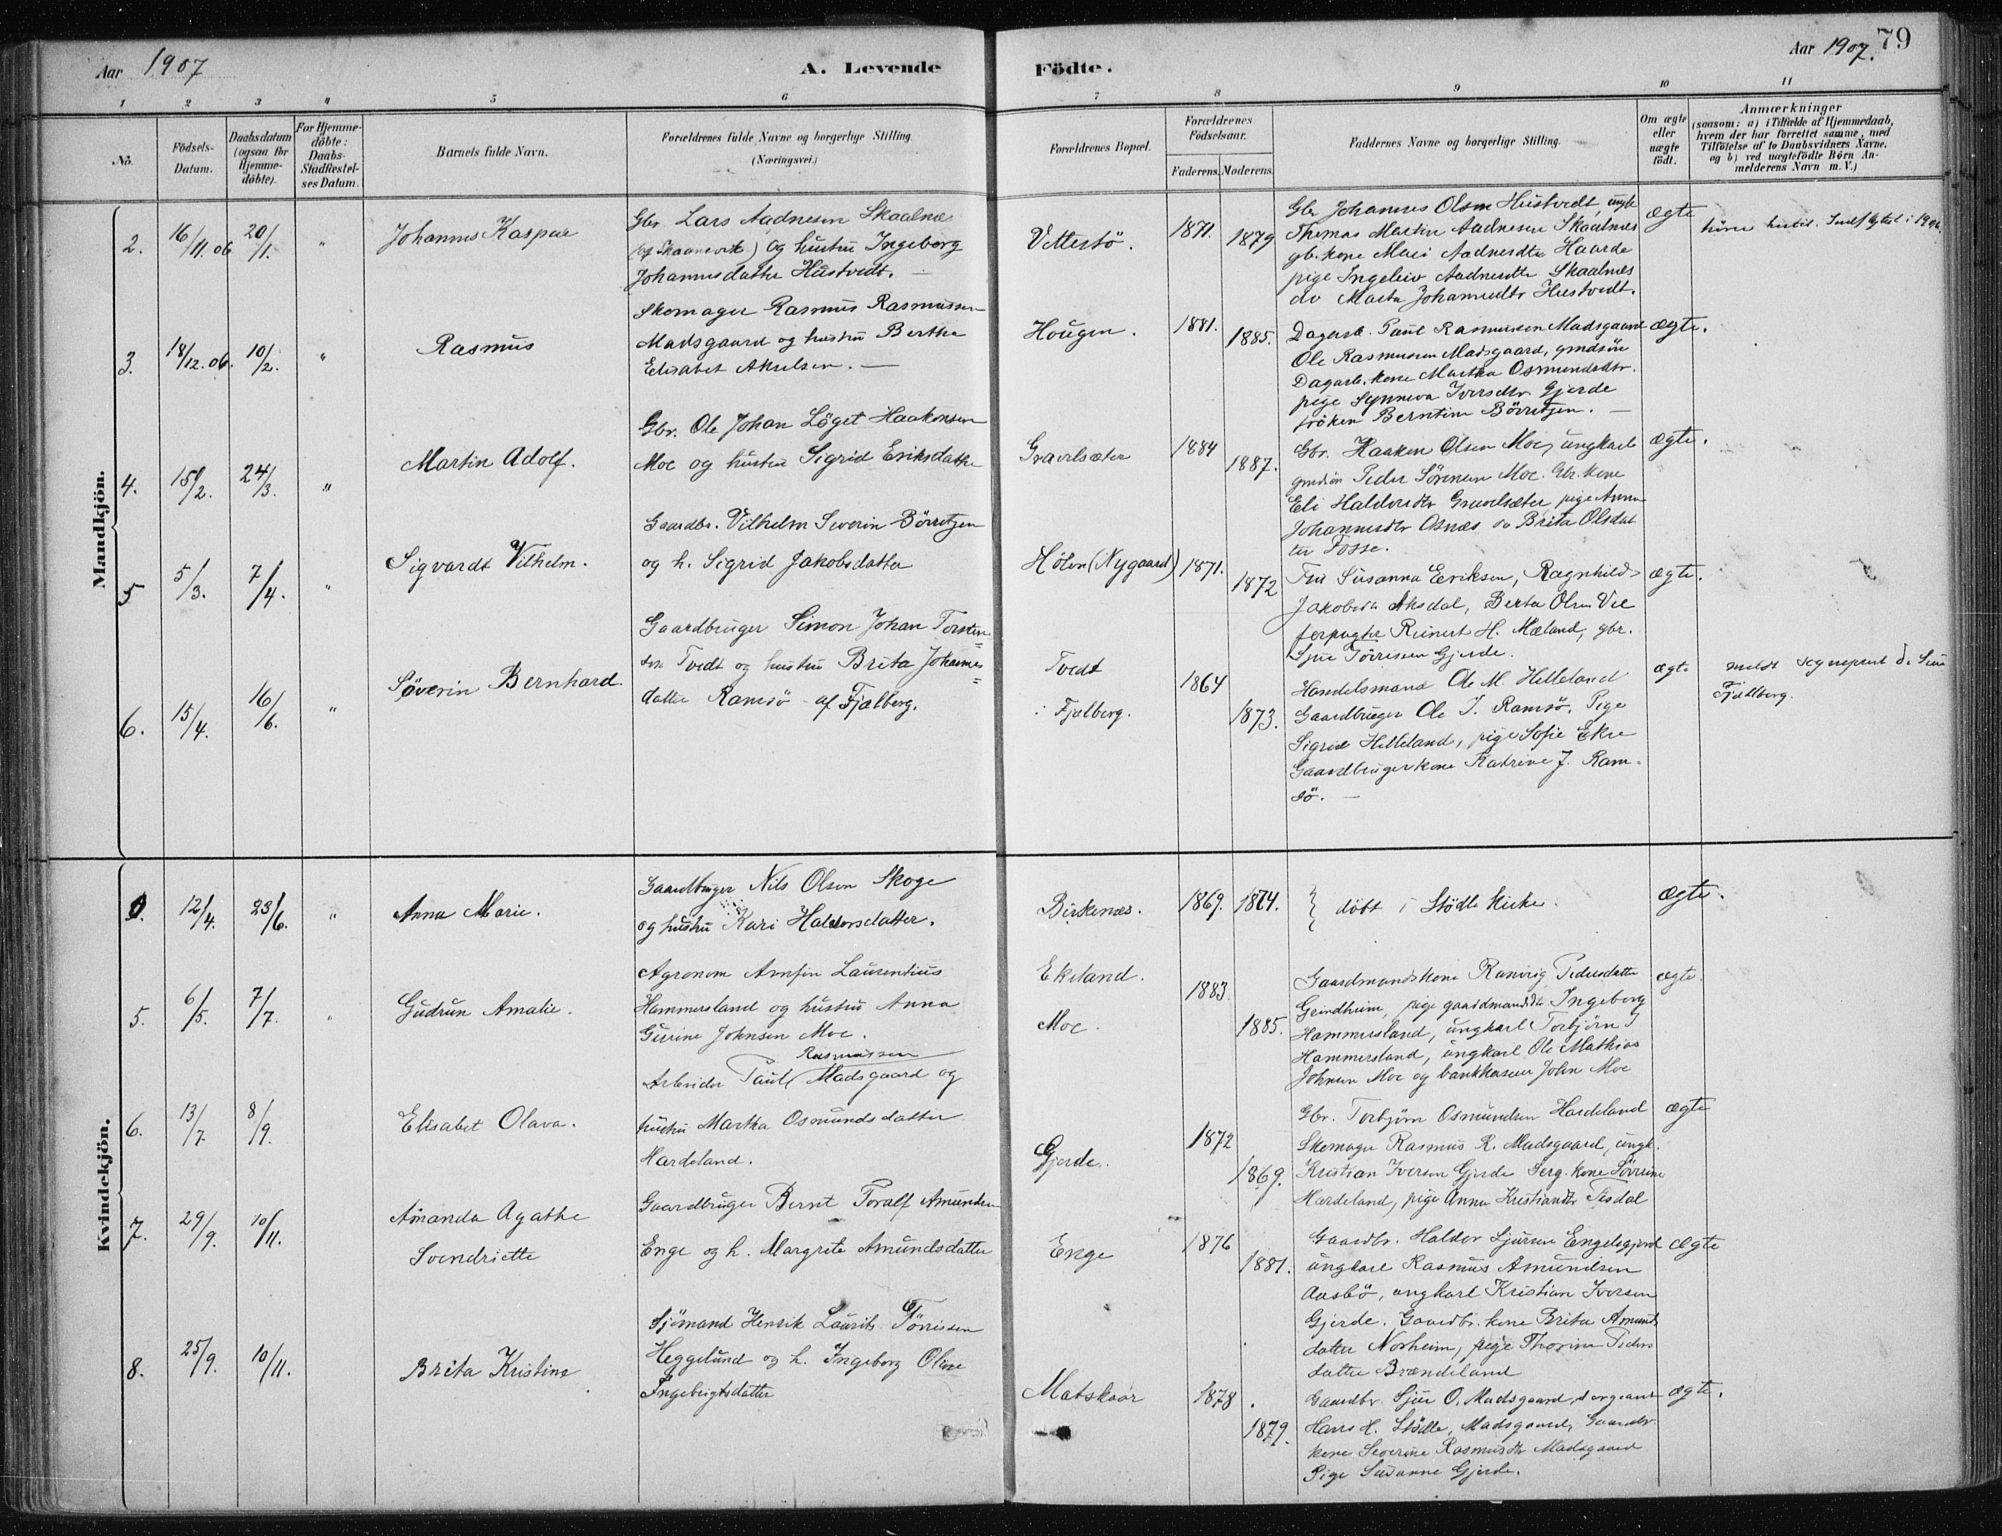 Aar 1907
A. Levende
Födte.
Aar 1907.
79
1 2 3 4 5 6 7 8 9 10 11
No.
Födsels-
Datum.
Daabsdatum
(ogsaa for
Hjemme-
döbte).
For Hjemme-
döbte:
Daabs-
Stadfæstel-
ses Datum.
Barnets fulde Navn.
Forældrenes fulde Navne og borgerlige Stilling.
(Næringsvei.)
Forældrenes Bopæl.
Forældrenes
Födselsaar.
Faderens. Moderens.
Faddernes Navne og borgerlige Stilling.
Om ægte
eller
uægte
födt.
Anmærkninger
(saasom: a) i Tilfælde af Hjemmedaab,
hvem der har forrettet samme, med
Tilföielse af to Daabsvidners Navne,
og b) ved uægtefödte Börn An-
melderens Navn m. V.)
Mandkjön.
2.
16/11.06
20/1.
"
Johannes Kaspar
Gbr. Lars Aadnesen Skaalnæs
(af Skaanevik) og hustru Ingeborg
Johannesdatter Hustvedt. —
Vettestö.
1871.
1879
Gbr. Johannes Olsen Hustvedt, ungk.
Thomas Martin Aadnesen Skaalnæs
gb. kone Mari Aadnesdtr Haarde
pige Ingeleiv Aadnesdtr Skaalnæs
do Marta Johannesdtr Hustvedt.
ægte
hører hertil. Indflyttet i 1906.
3.
18/12.06.
10/2.
"
Rasmus
Skomager Rasmus Rasmussen
Madsgaard og hustru Bertha
Elisabet Akselsen. —
Hougen.
1881.
1885.
Dagarb. Paul Rasmussen Madsgaard
Ole Rasmussen Madsgaard, gmdsön
Dagarb. kone Martha Osmundsdtr.
pige Synneva Iversdtr Gjerde
fröken Berntine Börretzen. —
ægte.
4.
15/2.
24/3.
"
Martin Adolf.
Gbr. Ole Johan Löget Haakonsen
Moe og hustru Sigrid Eriksdatter
Gravelsæter
1884
1887.
Gbr. Haaken Olsen Moe, ungkarl
gmdsön Peder Sörensen Moe. Gbr. kone
Eli Haldorsdtr Gravelsæter, pige Anna
Johannesdtr Osnæs do Brita Olsdat
ter Fosse.
ægte.
5
5/3.
7/4.
"
Sigvardt Vilhelm.
Gaardbr. Vilhelm Severin Börretzen
og h. Sigrid Jakobsdatter
Hölen (Nygaard)
1871.
1872
Fru Susanna Eriksen, Ragnhild
Jakobsdtr Aksdal, Berta Olsen Vee
forpagter Reinert H. Mæland, gbr.
Sjur Törrissen Gjerde.
ægte.
6.
15/4.
16/6.
"
Söverin Bernhard.
Gaardbruger Simon Johan Torsten
sen Tvedt og hustru Brita Johannes
datter Ramsö - af Fjelberg.
Tvedt
i Fjelberg.
1864
1873.
Handelsmand Ole M. Helleland
Gaardbruger Ole J. Ramsö, Pige
Sigrid Helleland, pige Sofie Ekre
Gaardbrugerkone Katrine J. Ram-
sö. —
ægte
meldt sogneprest
Fjelberg.
Kvindekjön.
12/4.
23/6.
"
Anna Marie.
Gaardbruger Nils Olsen Skoge
og hustru Kari Haldorsdatter.
Birkenæs.
1869.
1874.
döbt i Stödle Kirke.
ægte.
5.
6/5.
7/7.
Gudrun Amalie.
Agronom Arnfin Laurentius
Hammersland og hustru Anna
Gurine Johnsen Moe.
Ekeland.
Moe.
1883.
1885.
Gaardmandskone Ranveig Pedersdatter
Grindheim, pige gaardmandsdtr Ingeborg
Hammersland, ungkarl Torbjörn J
Hammersland, ungkarl Ole Mathias
Johnsen Moe og bankkasserer John Moe
ægte.
6.
13/7.
8/9.
Elisabet Olava.
Rasmussen
Arbeider Paul Madsgaard og
hustru Martha Osmundsdatter
Hardeland.
Gjerde.
1872
1869.
Gbr. Torbjörn Osmundsen Hardeland
Skomager Rasmus R. Madsgaard, ungk.
Kristian Iversen Gjerde Serg. kone Sörrine
Hardeland, pige Anna Kristiansdtr Tesdal
ægte
7.
29/9.
10/11.
Amanda Agathe
Svendriette
Gaardbruger Bernt Toralf Amundsen
Enge og h. Margrete Amundsdatter
Enge
1876
1881.
Gaardbr. Haldor Sjursen Engelsgjerd
ungkarl Rasmus Amundsen
Aasbö, ungkarl Kristian Iversen
Gjerde. Gaardbr. kone Brita Amunds
datter Norheim, pige Thorine Peders
datter Brændeland
ægte
8.
25/9.
10/11.
Brita Kristine
Sjömand Henrik Laurits Törrissen
Heggelund og h. Ingeborg Oline
Ingebrigtsdatter
Matskaar
1878
1879.
Gaardbr. Sjur O. Madsgaard, sergeant
Hans H. Stödle, Madsgaard, Gaardbr.
kone Severine Rasmusdtr Madsgaard
Pige Susanne Gjerde.
ægte.